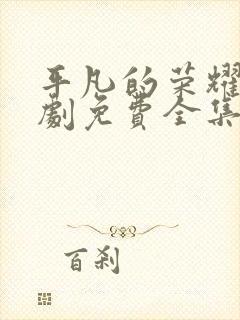 平凡的荣耀
劇免費全集
百刹